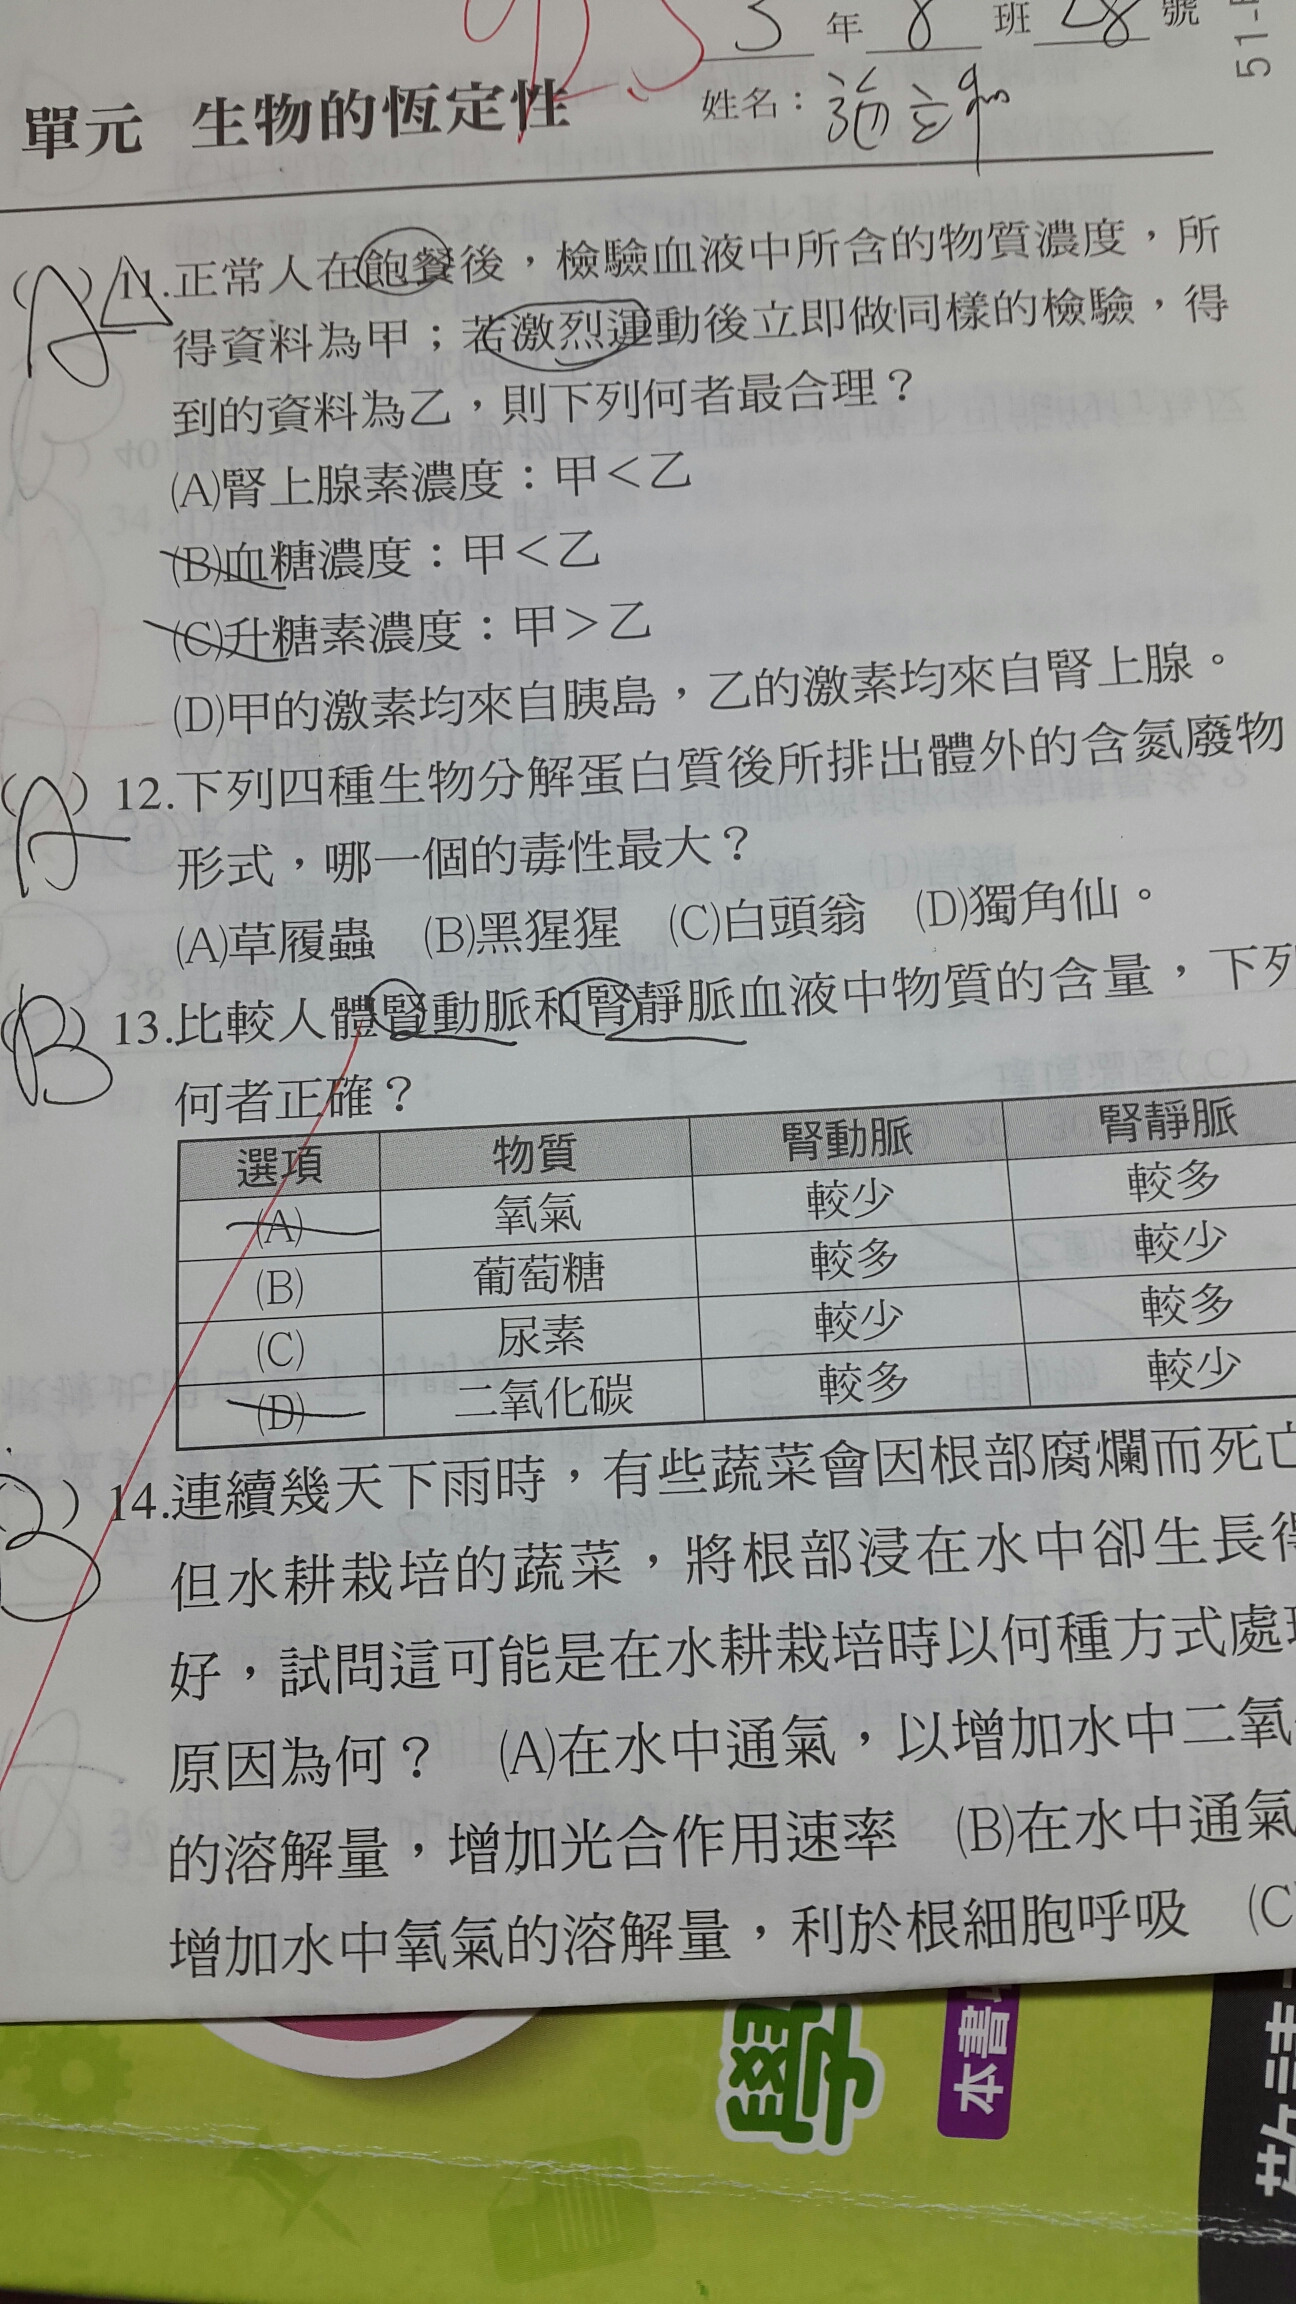 3 年 8 班 28 號
單元 生物的恆定性 姓名：
(A) 11.正常人在飽餐後，檢驗血液中所含的物質濃度，所
得資料為甲；若激烈運動後立即做同樣的檢驗，得
到的資料為乙，則下列何者最合理？
(A)腎上腺素濃度：甲＜乙
(B)血糖濃度：甲＜乙
(C)升糖素濃度：甲＞乙
(D)甲的激素均來自胰島，乙的激素均來自腎上腺。
(A) 12.下列四種生物分解蛋白質後所排出體外的含氮廢物
形式，哪一個的毒性最大？
(A)草履蟲 (B)黑猩猩 (C)白頭翁 (D)獨角仙。
(B) 13.比較人體腎動脈和腎靜脈血液中物質的含量，下列
何者正確？
選項 物質 腎動脈 腎靜脈
(A) 氧氣 較少 較多
(B) 葡萄糖 較多 較少
(C) 尿素 較少 較多
(D) 二氧化碳 較多 較少
(B) 14.連續幾天下雨時，有些蔬菜會因根部腐爛而死亡
但水耕栽培的蔬菜，將根部浸在水中卻生長得
好，試問這可能是在水耕栽培時以何種方式處理
原因為何？ (A)在水中通氣，以增加水中二氧
的溶解量，增加光合作用速率 (B)在水中通氣
增加水中氧氣的溶解量，利於根細胞呼吸 (C
學
本書